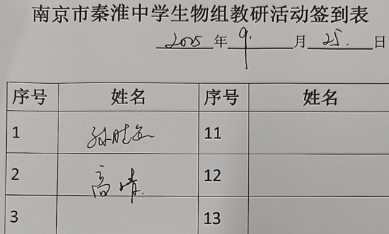 南京市秦淮中学生物组教研活动签到表
2005年 9. 月 25. 日
序号 姓名 序号 姓名
1 11
2 高晴 12
3 13